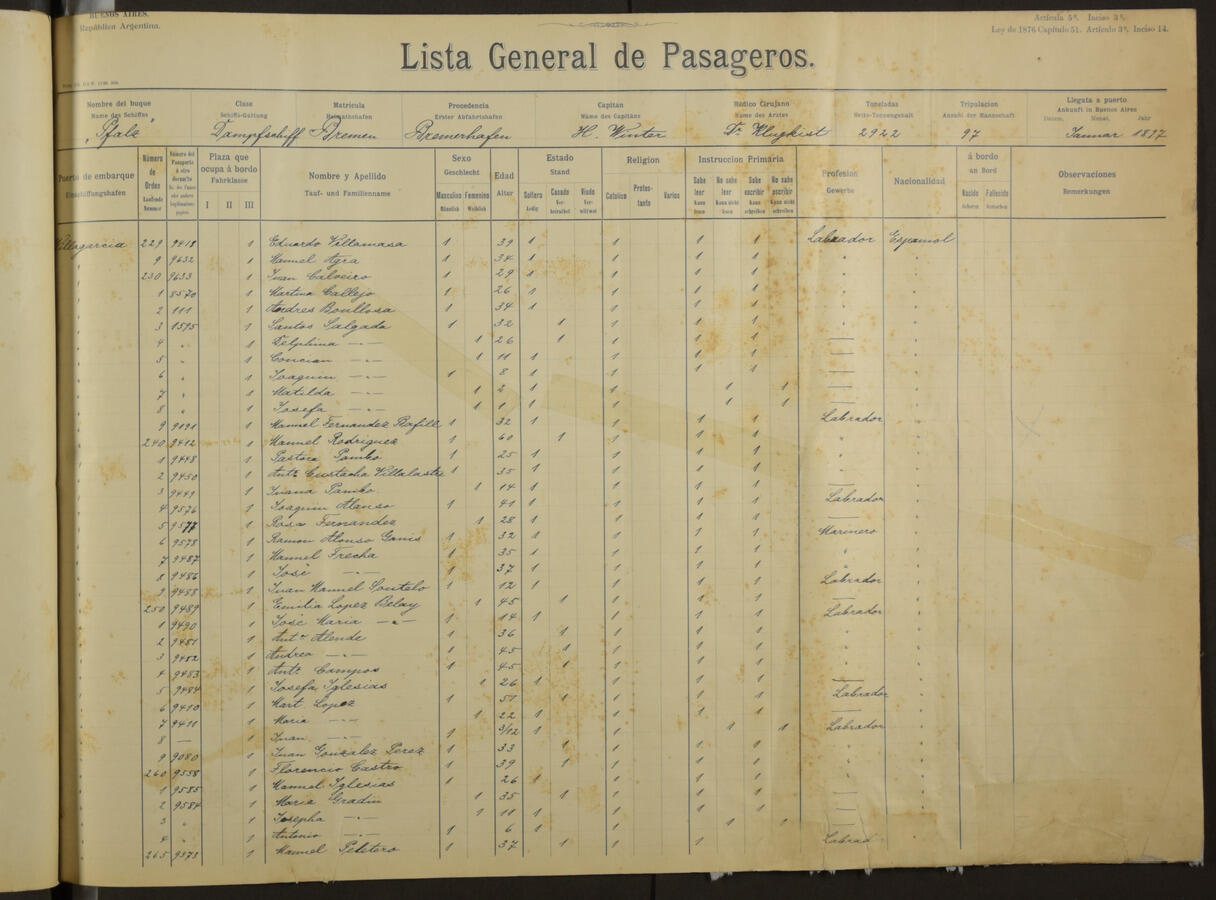 BUENOS AIRES.
República Argentina.
Artícula 5º. Inciso 3º.
Ley de 1876 Capítulo 51. Artículo 3º. Inciso 14.
Lista General de Pasageros.
Nombre del buque Clase Matrícula Procedencia Capitán Médico Cirujano Toneladas Tripulacion Llegata a puerto
Name des Schiffes Schiffs-Gattung Heimathshafen Erster Abfahrtshafen Name des Capitäns Name des Arztes Netto-Tonnengehalt Anzahl der Mannschaft Ankunft in Buenos Aires
Datum, Monat, Jahr
"Pfalz" Dampfschiff Bremen Bremerhafen H. Winter Dr. Klugkist 2922 97 Januar 1897
Puerto de embarque Número de Orden Plaza que ocupa á bordo Nombre y Apellido Sexo Edad Estado Religion Instruccion Primaria Profesion Nacionalidad á bordo Observaciones
Einschiffungshafen Laufende Nummer Fahrklasse Tauf- und Familienname Geschlecht Alter Stand Gewerbe an Bord Bemerkungen
I II III Masculino Femenino Soltero Casado Viudo Catolico Protestante Varios Sabe leer No sabe leer Sabe escribir No sabe escribir Nacido Fallecido
Männlich Weiblich Ledig Verheirathet Verwittwet Kann lesen Kann nicht lesen Kann schreiben Kann nicht schreiben
Villagarcia 229 9418 1 Eduardo Villamasa 1 39 1 1 1 1 Labrador Espannol
" 9 9632 1 Manuel Agra 1 34 1 1 1 1 " "
" 230 9633 1 Juan Calveiro 1 29 1 1 1 1 " "
" 1 8570 1 Martino Callejo 1 26 1 1 1 1 " "
" 2 111 1 Andres Boullosa 1 34 1 1 1 1 " "
" 3 1595 1 Santos Salgado 1 32 1 1 1 1 " "
" 4 " 1 Delphina —"— 1 26 1 1 1 1 — "
" 5 " 1 Concian —"— 1 11 1 1 1 1 — "
" 6 " 1 Joaquin —"— 1 8 1 1 1 1 — "
" 7 " 1 Matilda —"— 1 2 1 1 1 1 — "
" 8 " 1 Josefa —"— 1 1 1 1 1 1 — "
" 9 9191 1 Manuel Fernandez 1 32 1 1 1 1 Labrador "
" 240 9412 1 Manuel Rodriguez 1 60 1 1 1 1 " "
" 1 9448 1 Pastora Pombo 1 25 1 1 1 1 " "
" 2 9450 1 Antº Eustacha Villalastre 1 35 1 1 1 1 " "
" 3 9449 1 Juana Pombo 1 14 1 1 1 1 — "
" 4 9576 1 Joaquin Alonso 1 41 1 1 1 1 Labrador "
" 5 9577 1 Rosa Fernandez 1 28 1 1 1 1 — "
" 6 9578 1 Ramon Alonso 1 32 1 1 1 1 Marinero "
" 7 9487 1 Manuel Frecha 1 35 1 1 1 1 " "
" 8 9486 1 José —"— 1 37 1 1 1 1 "
" 9 9488 1 Juan Manuel Soutelo 1 12 1 1 1 1 Labrador "
" 250 9489 1 Emilia Lopez Belay 1 45 1 1 1 1 — "
" 1 9490 1 José Maria —"— 1 14 1 1 1 1 Labrador "
" 2 9481 1 Antº Alende 1 36 1 1 1 1 " "
" 3 9482 1 Andrea —"— 1 45 1 1 1 1 " "
" 4 9483 1 Antº Campos 1 45 1 1 1 1 " "
" 5 9484 1 Josefa Iglesias 1 26 1 1 1 1 — "
" 6 9410 1 Mart Lopez 1 51 1 1 1 1 Labrador "
" 7 9411 1 Maria —"— 1 22 1 1 1 1 — "
" 8 — 1 Juan —"— 1 3/12 1 1 1 1 Labrador "
" 9 9080 1 Juan Gonzalez Perez 1 33 1 1 1 1 " "
" 260 9558 1 Florencio Castro 1 39 1 1 1 1 " "
" 1 9585 1 Manuel Iglesias 1 26 1 1 1 1 " "
" 2 9584 1 Maria Gradin 1 35 1 1 1 1 — "
" 3 " 1 Josepha —"— 1 11 1 1 1 1 — "
" 4 " 1 Antonio —"— 1 6 1 1 1 1 — "
" 265 9373 1 Manuel Petetero 1 37 1 1 1 1 Labrad "